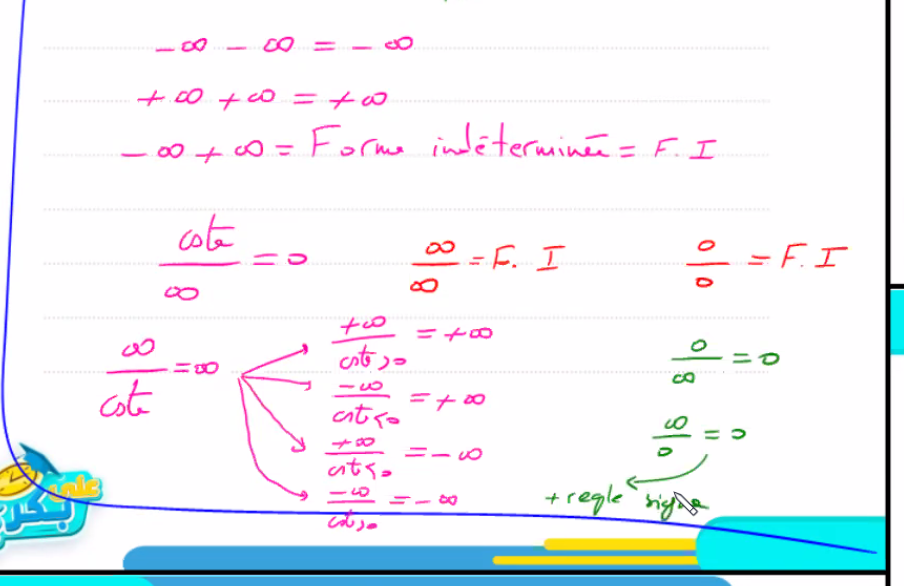 -∞ - ∞ = -∞
+∞ + ∞ = +∞
-∞ + ∞ = Forme indéterminée = F. I
cste/∞ = 0
∞/∞ = F. I
0/0 = F. I
∞/cste = ∞
+∞/cst>0 = +∞
-∞/cst<0 = +∞
+∞/cst<0 = -∞
-∞/cst>0 = -∞
0/∞ = 0
∞/0 = 0
+ regle signe
على بكري